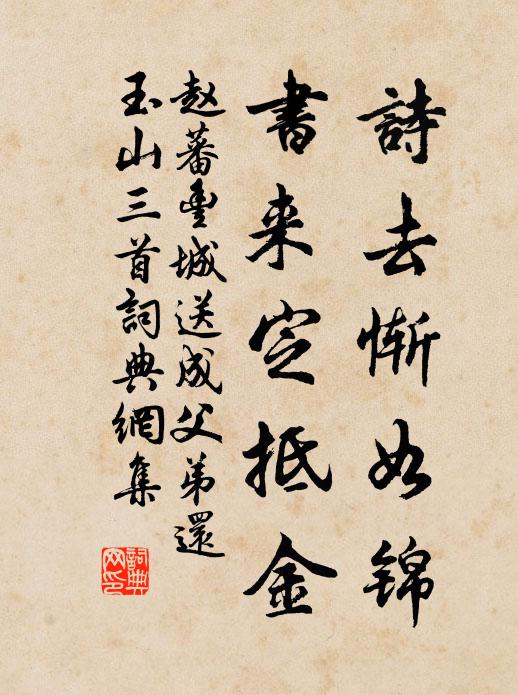 詩去慚如錦
書来定抵金
赵蕃豐城送成父弟還
玉山三首詞典網集
詞典网印